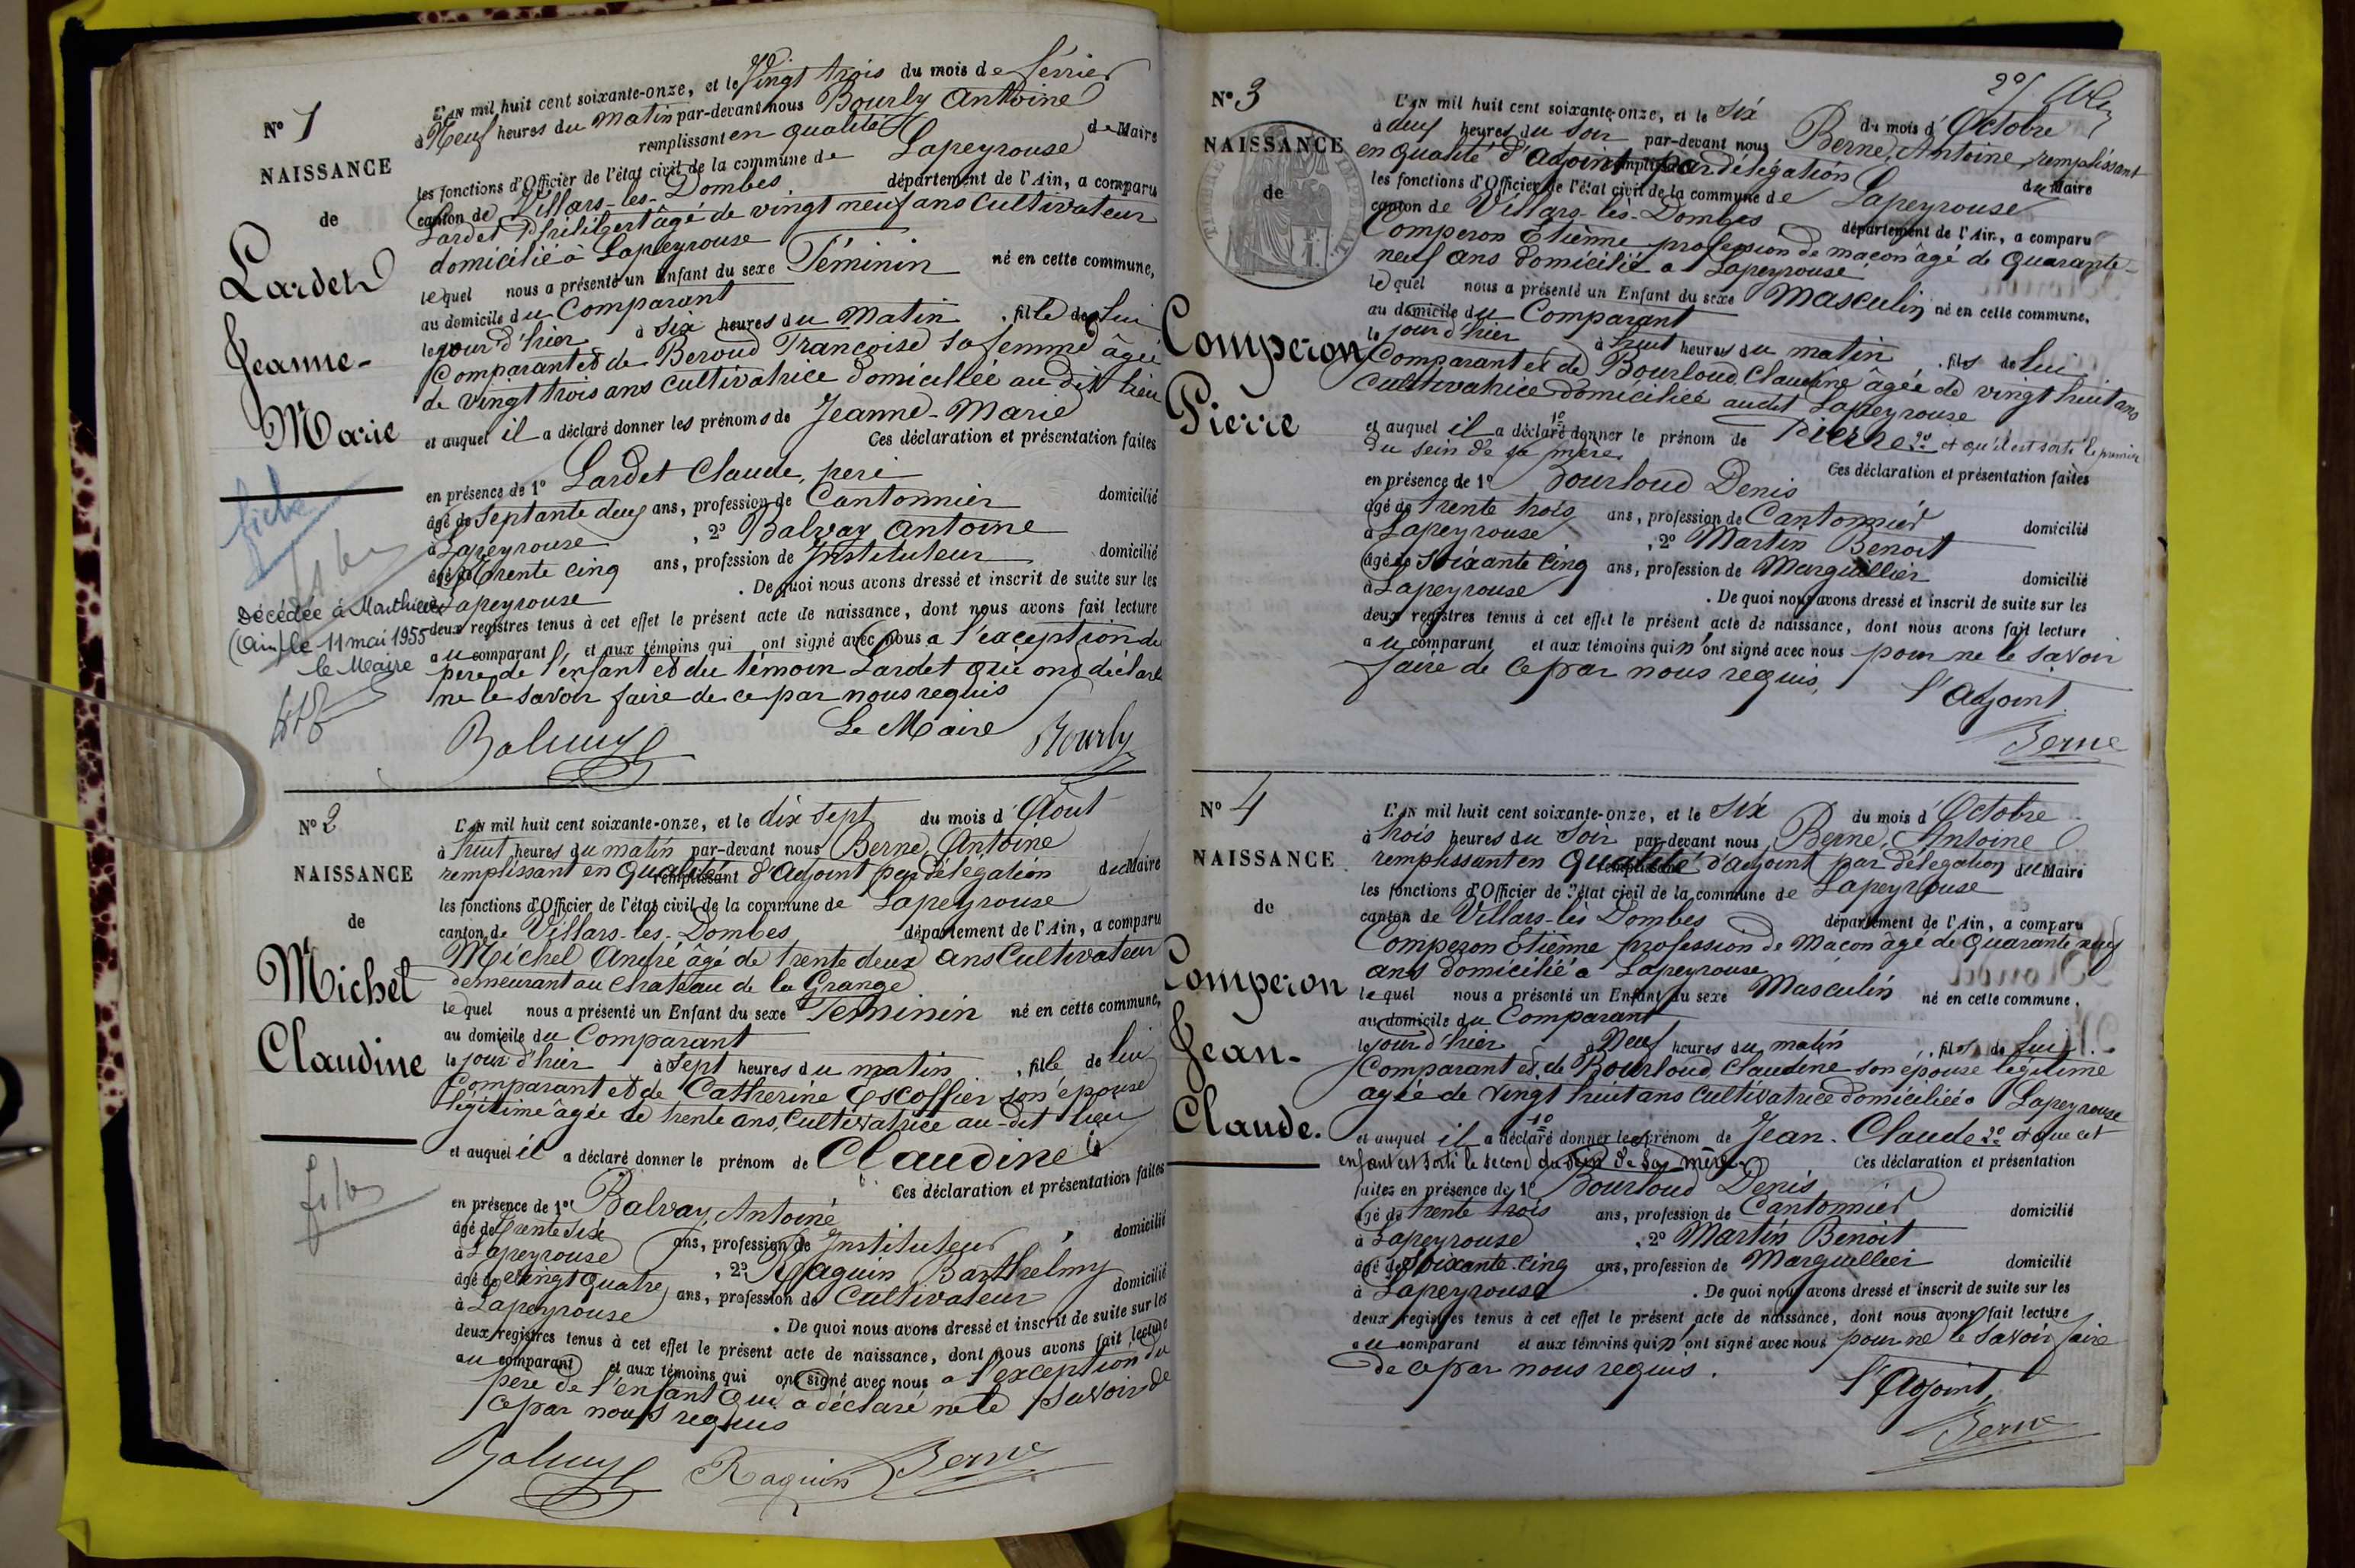 N° 1
NAISSANCE
de
Lardet
Jeanne-
Marie
Décédée à Marlhieux
(Ain) le 11 mai 1955
le Maire
L'AN mil huit cent soixante-onze, et le Vingt trois du mois de février
à Neuf heures du Matin par-devant nous Bourly Antoine
remplissant en qualité de Maire
les fonctions d'Officier de l'état civil de la commune de Lapeyrouse
canton de Villars-les-Dombes département de l'Ain, a comparu
Lardet Philibert âgé de vingt neuf ans Cultivateur
domicilié à Lapeyrouse
lequel nous a présenté un Enfant du sexe Féminin né en cette commune,
au domicile du Comparant
le jour d'hier à six heures du matin , fille de Lui
Comparant et de Beroud Francoise sa femme âgée
de vingt trois ans cultivatrice domiciliée au dit lieu
et auquel il a déclaré donner les prénoms de Jeanne-Marie
Ces déclaration et présentation faites
en présence de 1° Lardet Claude, peré
âgé de septante deux ans, profession de Cantonnier domicilié
à Lapeyrouse , 2° Balvay Antoine
âgé de trente cinq ans, profession de Instituteur domicilié
à Lapeyrouse . De quoi nous avons dressé et inscrit de suite sur les
deux registres tenus à cet effet le présent acte de naissance, dont nous avons fait lecture
au comparant et aux témoins qui ont signé avec nous a l'exception du
père de l'enfant et du témoin Lardet qui ont déclaré
ne le savoir faire de ce par nous requis
Le Maire
Balvay Bourly
N° 2
NAISSANCE
de
Michel
Claudine
L'AN mil huit cent soixante-onze, et le dix sept du mois d'Août
à huit heures du matin par-devant nous Berne, Antoine
remplissant en qualité remplissant d'Adjoint par délégation du Maire
les fonctions d'Officier de l'état civil de la commune de Lapeyrouse
canton de Villars-les-Dombes département de l'Ain, a comparu
Michel André âgé de trente deux ans Cultivateur
demeurant au chateau de la Grange
lequel nous a présenté un Enfant du sexe Feminin né en cette commune,
au domicile du Comparant
le jour d'hier à sept heures du matin , fille de lui
Comparant et de Catherine Escoffier son épouse
légitime âgée de trente ans, Cultivatrice au-dit lieu
et auquel il a déclaré donner le prénom de Claudine
Ces déclaration et présentation faites
en présence de 1° Balvay, Antoine
âgé de trente six ans, profession de Instituteur domicilié
à Lapeyrouse , 2° Raquin Barthelmy
âgé de vingt quatre ans, profession de Cultivateur domicilié
à Lapeyrouse . De quoi nous avons dressé et inscrit de suite sur les
deux registres tenus à cet effet le présent acte de naissance, dont nous avons fait lecture
au comparant et aux témoins qui ont signé avec nous a l'exception du
père de l'enfant qui a déclaré ne le savoir de
ce par nous requis
Balvay Raquin Berne
N° 3
NAISSANCE
de
TIMBRE IMPÉRIAL
Comperon
Pierre
L'AN mil huit cent soixante-onze, et le six du mois d'Octobre
à deux heures du soir par-devant nous Berne, Antoine, remplissant
en qualité d'Adjoint par délégation du Maire
les fonctions d'Officier de l'état civil de la commune de Lapeyrouse
canton de Villars-les-Dombes département de l'Ain, a comparu
Comperon Etienne profession de maçon âgé de quarante-
neuf ans domicilié a Lapeyrouse
lequel nous a présenté un Enfant du sexe Masculin né en cette commune,
au domicile du Comparant
le jour d'hier à huit heures du matin , fils de lui
Comparant et de Bourloud Claudine âgée de vingt huit ans
Cultivatrice domiciliée audit Lapeyrouse
et auquel il a déclaré 1° donner le prénom de Pierre 2° et qu'il est sorti le premier
du sein de sa mère. Ces déclaration et présentation faites
en présence de 1° Bourloud Denis
âgé de trente trois ans, profession de Cantonnier domicilié
à Lapeyrouse , 2° Martin Benoit
âgé de soixante cinq ans, profession de Marguillier domicilié
à Lapeyrouse . De quoi nous avons dressé et inscrit de suite sur les
deux registres tenus à cet effet le présent acte de naissance, dont nous avons fait lecture
au comparant et aux témoins qui n'ont signé avec nous pour ne le savoir
faire de ce par nous requis,
l'Adjoint
Berne
N° 4
NAISSANCE
de
Comperon
Jean-
Claude.
L'AN mil huit cent soixante-onze, et le six du mois d'Octobre
à trois heures du soir par-devant nous Berne, Antoine
remplissant en qualité d'adjoint par délégation du Maire
les fonctions d'Officier de l'état civil de la commune de Lapeyrouse
canton de Villars-les Dombes département de l'Ain, a comparu
Comperon Etienne, profession de Maçon âgé de Quarante neuf
ans domicilié a Lapeyrouse
lequel nous a présenté un Enfant du sexe Masculin né en cette commune,
au domicile du Comparant
le jour d'hier à Neuf heures du matin , fils de lui
Comparant et de Bourloud Claudine son épouse légitime
agée de vingt huit ans cultivatrice domiciliée a Lapeyrouse
et auquel il a déclaré 1° donner les prénom de Jean-Claude 2° et que cet
enfant est sorti le second du sein de sa mère. Ces déclaration et présentation
faites en présence de 1° Bourloud Denis
âgé de trente trois ans, profession de Cantonnier domicilié
à Lapeyrouse , 2° Martin Benoit
âgé de soixante-cinq ans, profession de Marguillier domicilié
à Lapeyrouse . De quoi nous avons dressé et inscrit de suite sur les
deux registres tenus à cet effet le présent acte de naissance, dont nous avons fait lecture
au comparant et aux témoins qui n'ont signé avec nous pour ne le savoir faire
de ce par nous requis.
l'Adjoint,
Berne